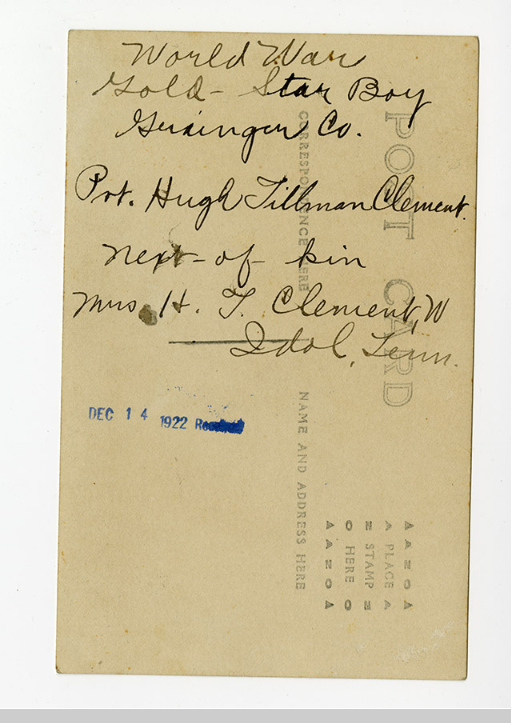 World War
Gold - Star Boy
Co.
Pvt. Hugh Tillman Clement.
Next - of - kin
Mrs. H. T. Clement, W
Idol, Tenn.
DEC 14 1922 Received
POST CARD
CORRESPONDENCE HERE
NAME AND ADDRESS HERE
PLACE
STAMP
HERE